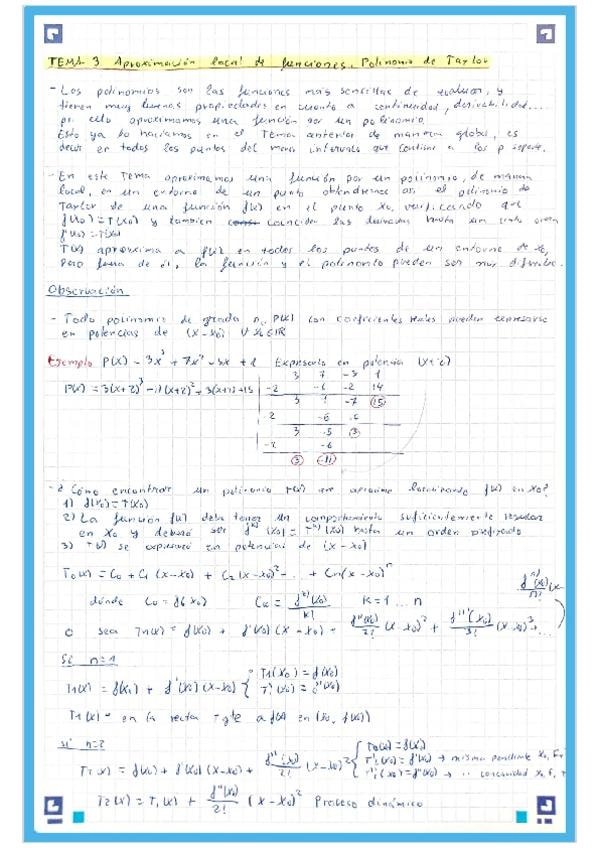 TEMA 3 Aproximación local de funciones. Polinomio de Taylor
- Los polinomios son las funciones más sencillas de evaluar, y
tienen muy buenas propiedades en cuanto a continuidad, derivabilidad....
por ello aproximamos una función por un polinomio.
Esto ya lo hacíamos en el Tema anterior de manera global, es
decir en todos los puntos del menor intervalo que contiene a los p soporte.
- En este Tema aproximamos una función por un polinomio, de manera
local, en un entorno de un punto obtendremos así el polinomio de
Taylor de una función f(x) en el punto x₀, verificando que
f(x₀) = T(x₀) y también coinciden las derivadas hasta un cierto orden
f'(x₀) = T'(x₀)
T(x) aproxima a f(x) en todos los puntos de un entorno de x₀,
pero fuera de él, la función y el polinomio pueden ser muy
Observación
- Todo polinomio de grado n, P(x) con coeficientes reales pueden expresarse
en potencias de (x-x₀) ∀ x₀ ∈ ℝ
Ejemplo P(x) = 3x³ + 7x² - 3x + 1 Expresarlo en potencia (x+2)
3 7 -3 1
-2 -6 -2 14
P(x) = 3(x+2)³ - 11(x+2)² + 3(x+2) + 15
3 1 -7 15
-2 -6
3 -5 3
-2 -6
3 -11
- ¿Cómo encontrar un polinomio T(x) que aproxime localmente f(x) en x₀?
1) f(x₀) = T(x₀)
2) La función f(x) debe tener un comportamiento suficientemente regular
en x₀ y deberá ser f^(k)(x₀) = T^(k)(x₀) hasta un orden prefijado
3) T(x) se expresará en potencias de (x-x₀)
Tn(x) = C₀ + C₁ (x-x₀) + C₂(x-x₀)² - ... + Cn(x-x₀)ⁿ
dónde C₀ = f(x₀) Cₖ = f^(k)(x₀)/k! k = 1 ... n
f^(n)(x₀)/n! (x-
o sea Tn(x) = f(x₀) + f'(x₀) (x-x₀) + f''(x₀)/2! (x-x₀)² + f'''(x₀)/3! (x-x₀)³ + ...
Si n=1
T₁(x) = f(x₀) + f'(x₀) (x-x₀) { T₁(x₀) = f(x₀)
T₁'(x₀) = f'(x₀)
T₁(x) = en la recta tgte a f(x) en (x₀, f(x₀))
si n=2
T₂(x) = f(x₀) + f'(x₀) (x-x₀) + f''(x₀)/2! (x-x₀)² { T₂(x₀) = f(x₀)
T₂'(x₀) = f'(x₀) → misma pendiente
T₂''(x₀) = f''(x₀) → " concavidad
T₂(x) = T₁(x) + f''(x₀)/2! (x-x₀)² Proceso dinámico